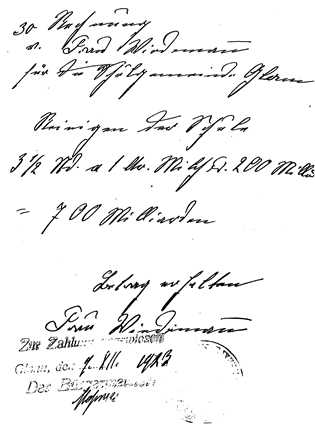 30 Rechnung
v. Frau Wiedemann
für die Schulgemeinde Glonn
Reinigen der Schule
3 1/2 Std. a 1 Ltr. Milch d. 200 Milli
= 700 Milliarden
Betrag erhalten
Frau Wiedemann
Zur Zahlung angewiesen
Glonn, den 7. XII. 1923
Der Bürgermeister